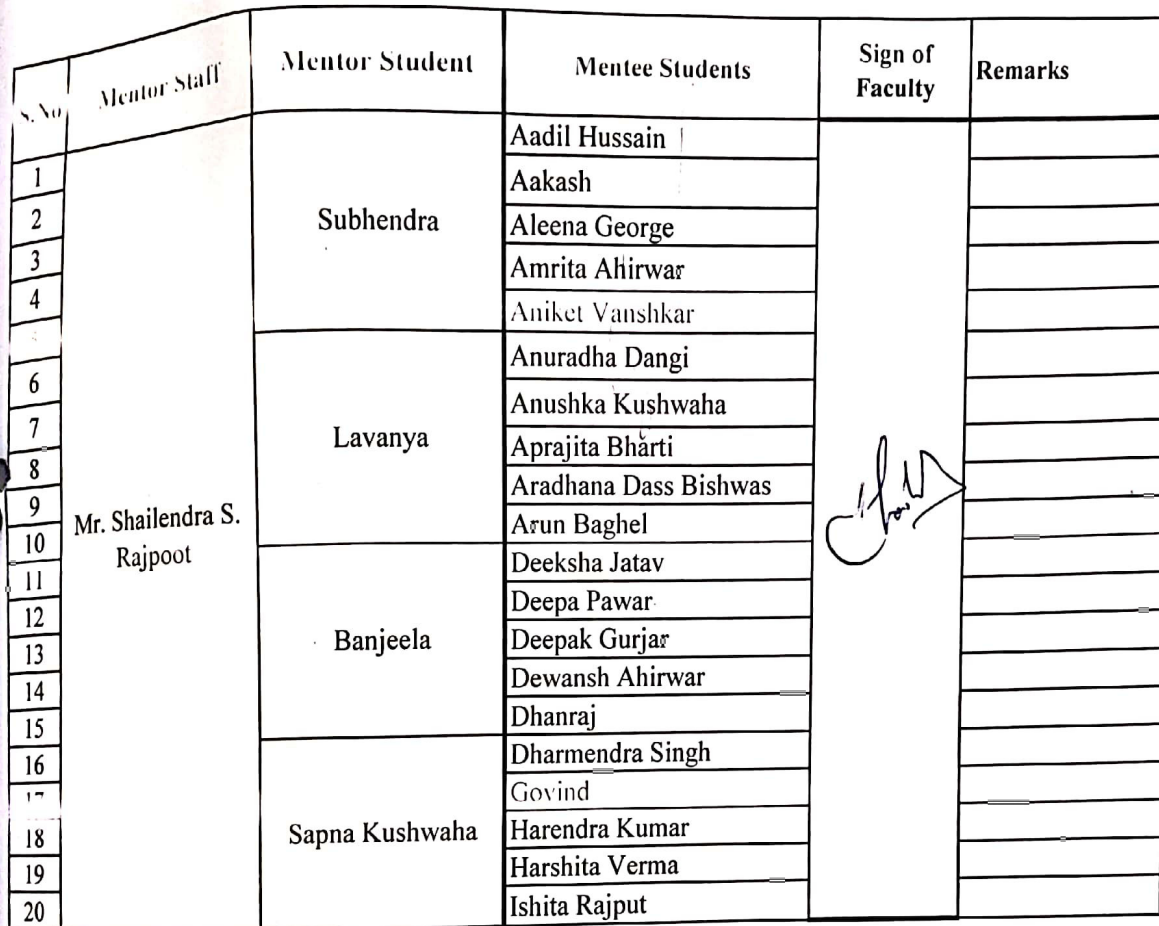 S. No Mentor Staff Mentor Student Mentee Students Sign of Faculty Remarks
1 Mr. Shailendra S. Rajpoot Subhendra Aadil Hussain
2 Aakash
3 Aleena George
4 Amrita Ahirwar
Aniket Vanshkar
6 Lavanya Anuradha Dangi
7 Anushka Kushwaha
8 Aprajita Bharti
9 Aradhana Dass Bishwas
10 Arun Baghel
11 Banjeela Deeksha Jatav
12 Deepa Pawar
13 Deepak Gurjar
14 Dewansh Ahirwar
15 Dhanraj
16 Sapna Kushwaha Dharmendra Singh
17 Govind
18 Harendra Kumar
19 Harshita Verma
20 Ishita Rajput